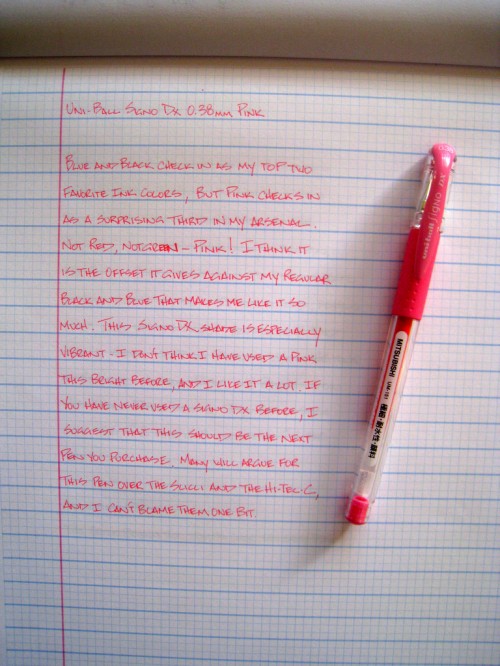 UNI-BALL SIGNO DX 0.38MM PINK
BLUE AND BLACK CHECK IN AS MY TOP TWO
FAVORITE INK COLORS, BUT PINK CHECKS IN
AS A SURPRISING THIRD IN MY ARSENAL.
NOT RED, NOT GREEN - PINK! I THINK IT
IS THE OFFSET IT GIVES AGAINST MY REGULAR
BLACK AND BLUE THAT MAKES ME LIKE IT SO
MUCH. THIS SIGNO DX SHADE IS ESPECIALLY
VIBRANT - I DON'T THINK I HAVE USED A PINK
THIS BRIGHT BEFORE, AND I LIKE IT A LOT. IF
YOU HAVE NEVER USED A SIGNO DX BEFORE, I
SUGGEST THAT THIS SHOULD BE THE NEXT
PEN YOU PURCHASE. MANY WILL ARGUE FOR
THIS PEN OVER THE SLICCI AND THE HI-TEC-C,
AND I CAN'T BLAME THEM ONE BIT.
uni-ball Signo
MITSUBISHI UM-151 極細・耐水性・顔料